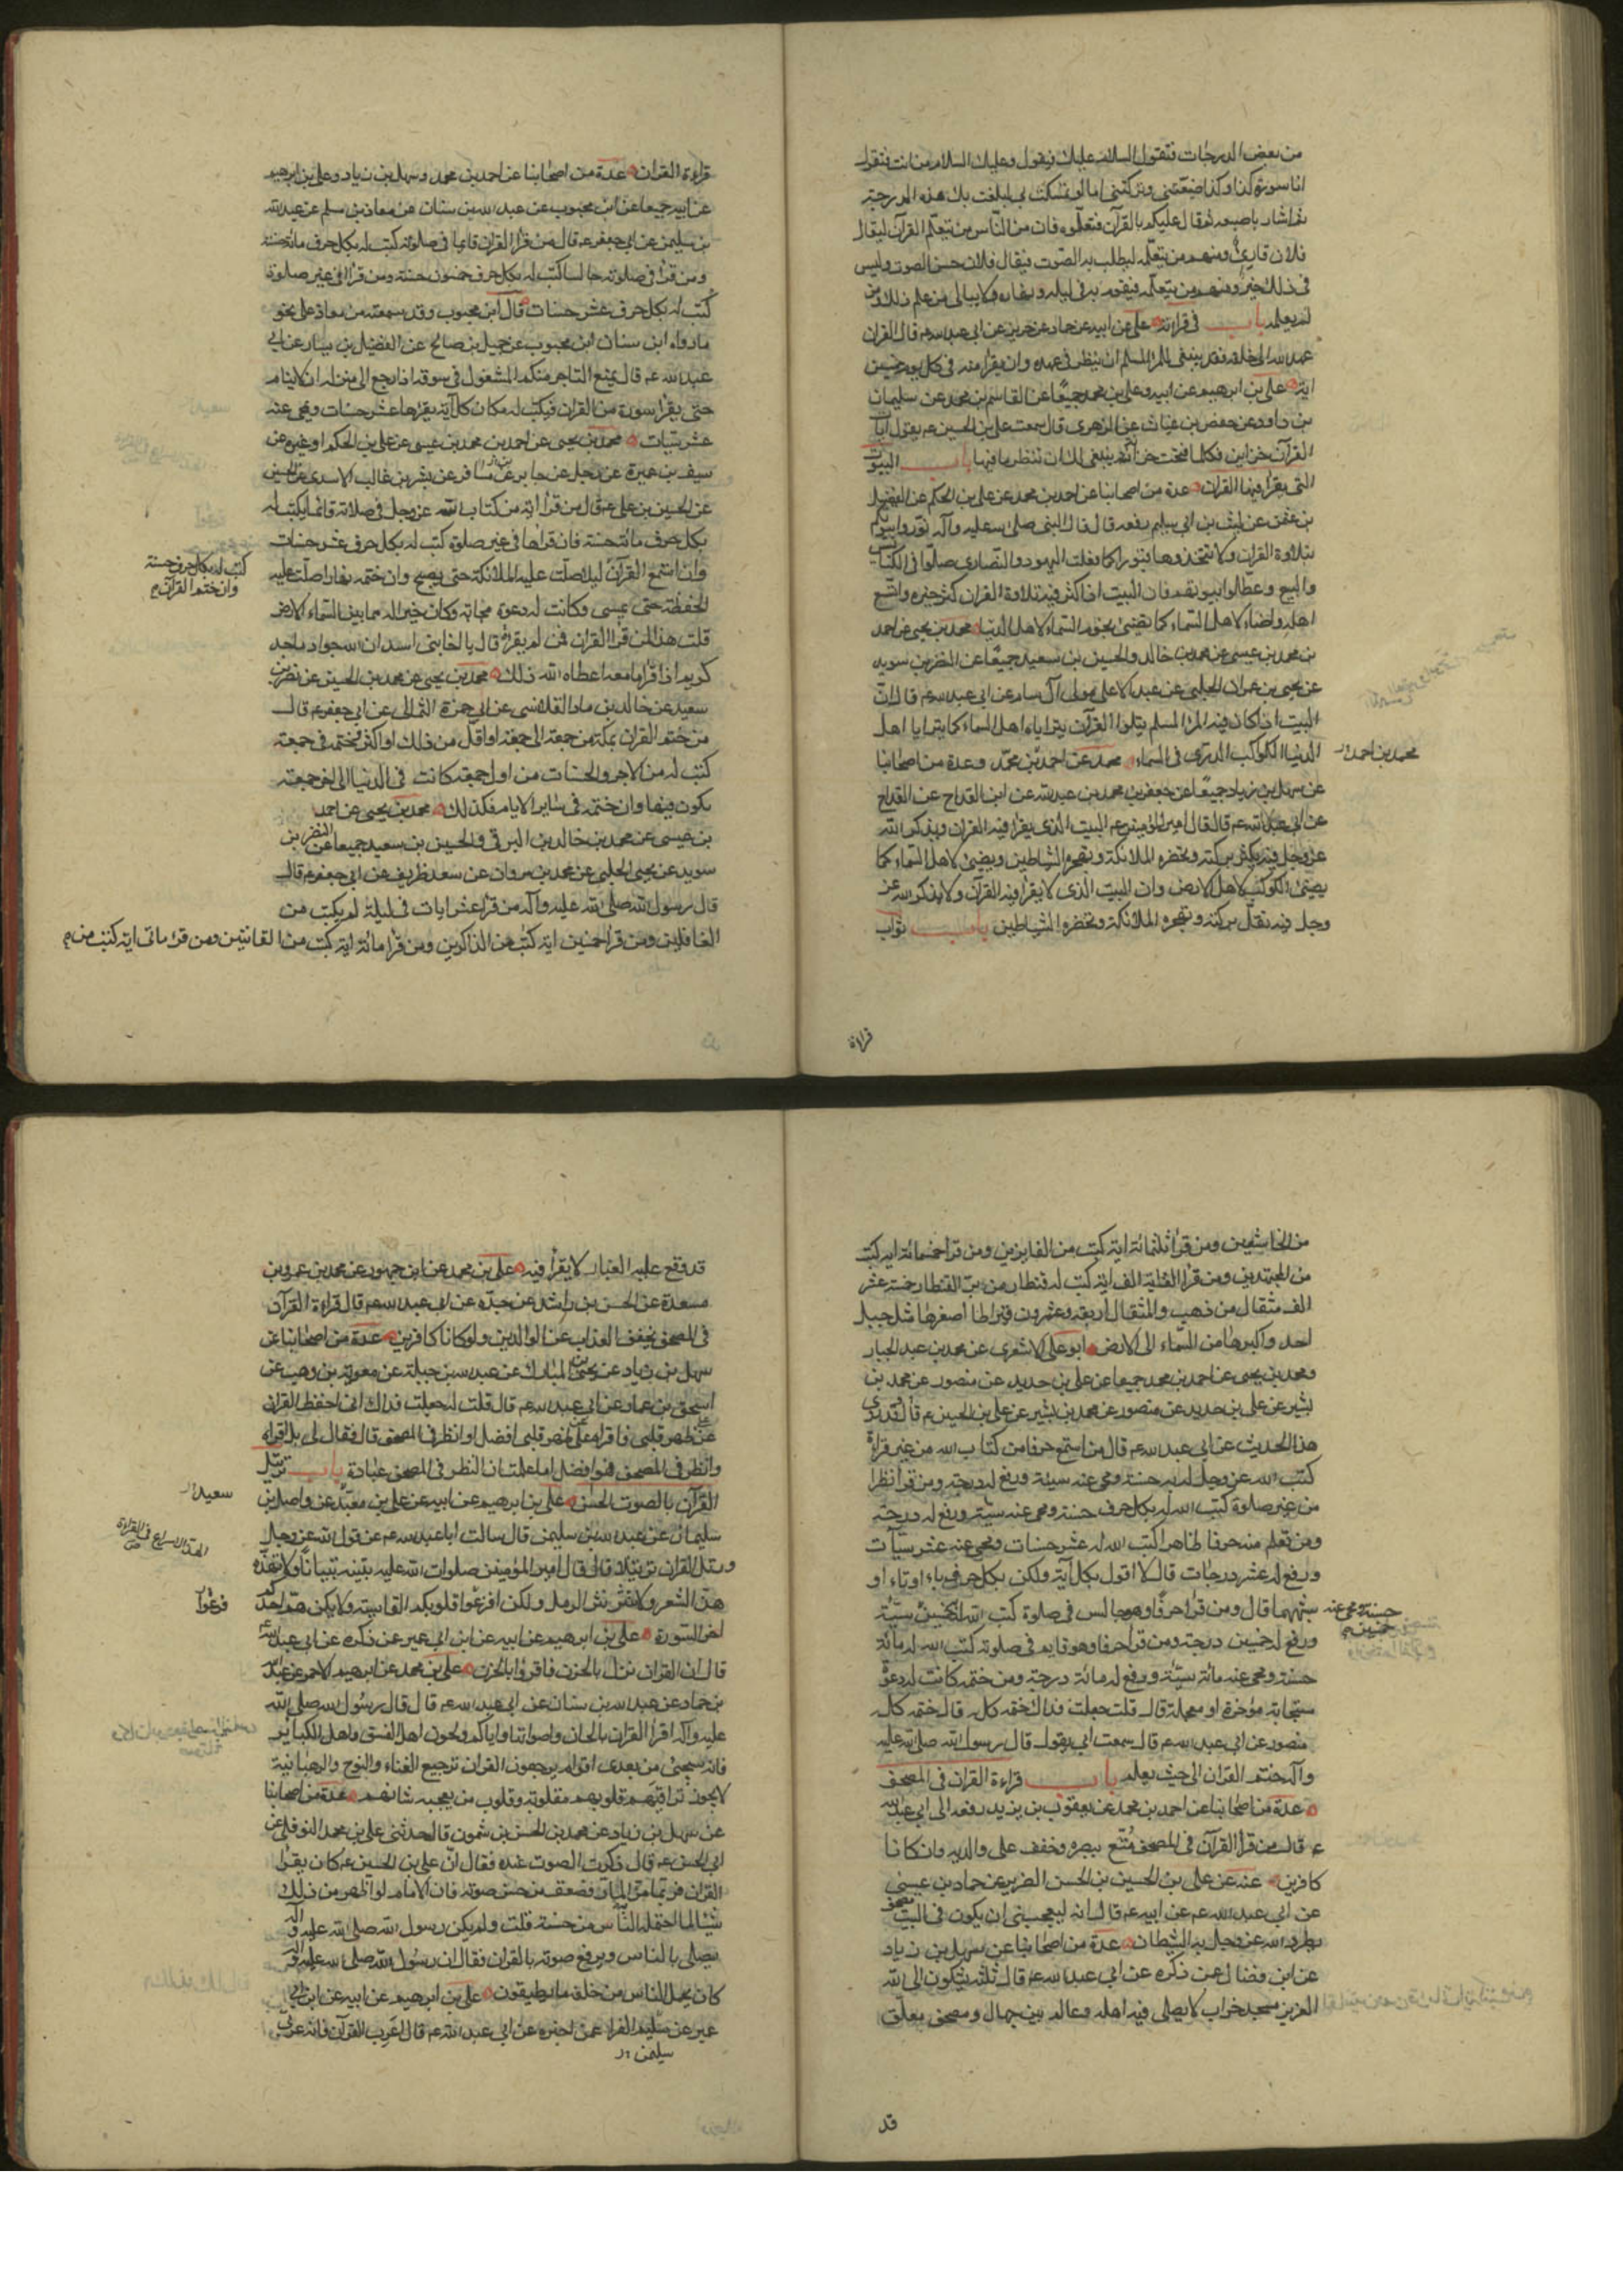 من بعض الدرجات فتقول السلام عليك فيقول وعليك السلام من انت فتقول
انا سورة كذا وكذا ضيعتني وتركتني اما لو تمسكت بي لبلغت بك هذه الدرجة
ثم اشار باصبعه ثم قال عليكم بالقرآن فتعلموه فان من الناس من يتعلم القرآن ليقال
فلان قارئ ومنهم من يتعلمه ليطلب به الصوت فيقال فلان حسن الصوت وليس
في ذلك خير ومنهم من يتعلمه فيقوم به في ليله ونهاره ولا يبالي من علم ذلك ومن
لم يعلمه باب في قراءته علي عن ابيه عن حماد عن حريز عن ابي عبد الله ع قال القران
عهد الله الى خلقه فقد ينبغي للمرء المسلم ان ينظر في عهده وان يقرأ منه في كل يوم خمسين
اية علي بن ابرهيم عن ابيه وعلي بن محمد جميعًا عن القاسم بن محمد عن سليمان
بن داود عن حفص بن غياث عن الزهري قال سمعت علي بن الحسين ع يقول آيات
القرآن خزاين فكلما فتحت خزانة ينبغي لك ان تنظر ما فيها باب البيوت
التي يقرأ فيها القران عدة من اصحابنا عن احمد بن محمد عن علي بن الحكم عن الفضيل
بن عثمن عن ليث بن ابي سليم رفعه قال قال النبي صلى الله عليه وآله نوروا بيوتكم
بتلاوة القران ولا تتخذوها قبورا كما فعلت اليهود والنصارى صلوا في الكنايس
والبيع وعطلوا بيوتهم فان البيت اذا كثر فيه تلاوة القران كثر خيره واتسع
اهله واضاء لاهل السماء كما تضيئ نجوم السماء لاهل الدنيا محمد بن يحيى عن احمد
بن محمد بن عيسى عن محمد بن خالد والحسين بن سعيد جميعًا عن النضر بن سويد
عن يحيى بن عمران الحلبي عن عبد الاعلى مولى آل سام عن ابي عبد الله ع قال ان
البيت اذا كان فيه المرء المسلم يتلوا القرآن يتراياه اهل السماء كما يترايا اهل
الدنيا الكوكب الدري في السماء محمد عن احمد بن محمد وعدة من اصحابنا
محمد بن احمد
عن سهل بن زياد جميعًا عن جعفر بن محمد بن عبيد الله عن ابن القداح عن القداح
عن ابي عبد الله ع قال قال امير المؤمنين ع البيت الذي يقرأ فيه القران ويذكر الله
عز وجل فيه يكثر بركته وتحضره الملائكة وتهجره الشياطين ويضيئ لاهل السماء كما
يضيئ الكوكب لاهل الارض وان البيت الذي لا يقرأ فيه القرآن ولا يذكر الله عز
وجل فيه تقل بركته وتهجره الملائكة وتحضره الشياطين باب ثواب
قراءة
قراءة القران عدة من اصحابنا عن احمد بن محمد وسهل بن زياد وعلي بن ابرهيم
عن ابيه جميعا عن ابن محبوب عن عبد الله بن سنان عن معاذ بن مسلم عن عبد الله
بن سليمن عن ابي جعفر ع قال من قرأ القران قايما في صلوته كتب له بكل حرف مائة حسنة
ومن قرأ في صلوته جالسا كتب له بكل حرف خمسون حسنة ومن قرأ في غير صلوة
كتب له بكل حرف عشر حسنات قال ابن محبوب وقد سمعته من معاذ على نحو
ما رواه ابن سنان ابن محبوب عن جميل بن صالح عن الفضيل بن يسار عن ابي
عبد الله ع قال يمنع التاجر منكم المشغول في سوقه اذا رجع الى منزله ان لا ينام
حتى يقرأ سورة من القران فيكتب له مكان كل آية يقرءها عشر حسنات ويمحى عنه
عشر سيئات محمد بن يحيى عن احمد بن محمد بن عيسى عن علي بن الحكم او غيره عن
سيف بن عميرة عن رجل عن جابر عن مسافر عن بشر بن غالب الاسدي عن الحسين
عن الحسين بن علي ع قال من قرأ آية من كتاب الله عز وجل في صلاته قائما يكتب له
بكل حرف مائة حسنة فان قراها في غير صلوة كتب له بكل حرف عشر حسنات
وان استمع القرآن ليلا صلت عليه الملائكة حتى يصبح وان ختمه نهارا صلت عليه
كتب له بكل حرف حسنة
وان ختم القرآن م
الحفظة حتى يمسي وكانت له دعوة مجابة وكان خيرا له مما بين السماء الى الارض
قلت هذا لمن قرأ القران فمن لم يقرأه قال يا اخا بني اسد ان الله جواد ماجد
كريم اذا قرأ ما معه اعطاه الله ذلك محمد بن يحيى عن محمد بن الحسين عن نضر بن
سعيد عن خالد بن ماد القلانسي عن ابي حمزة الثمالي عن ابي جعفر ع قال
من ختم القران بمكة من جمعة الى جمعة او اقل من ذلك او اكثر وختمه في جمعة
كتب له من الاجر والحسنات من اول جمعة كانت في الدنيا الى اخر جمعة
يكون فيها وان ختمه في ساير الايام فكذلك محمد بن يحيى عن احمد
بن عيسى عن محمد بن خالد بن البرقي والحسين بن سعيد جميعا عن النضر بن
سويد عن يحيى الحلبي عن محمد بن مروان عن سعد ظريف عن ابي جعفر ع قال
قال رسول الله صلى الله عليه وآله من قرأ عشر ايات في ليلة لم يكتب من
الغافلين ومن قرأ خمسين اية كتب من الذاكرين ومن قرأ مائة اية كتب من القانتين ومن قرء مائتي اية كتب من م
من الخاشعين ومن قرأ ثلثمائة اية كتب من الفايزين ومن قرأ خمسمائة اية كتب
من المجتهدين ومن قرأ الف اية كتب له قنطار من بر القنطار خمسة عشر
الف مثقال من ذهب والمثقال اربعة وعشرون قيراطا اصغرها مثل جبل
احد واكبرها من السماء الى الارض ابو علي الاشعري عن محمد بن عبد الجبار
ومحمد بن يحيى عن احمد بن محمد جميعا عن علي بن حديد عن منصور عن محمد بن
بشير عن علي بن حديد عن منصور عن محمد بن بشير عن علي بن الحسين ع قال قد روي
هذا الحديث عن ابي عبد الله ع قال من استمع حرفا من كتاب الله من غير قراءة
كتب الله عز وجل له به حسنة ومحى عنه سيئة ورفع له درجة ومن قرأ نظرا
من غير صلوة كتب الله له بكل حرف حسنة ومحى عنه سيئة ورفع له درجة
ومن تعلم منه حرفا ظاهرا كتب الله له عشر حسنات ومحى عنه عشر سيئات
ورفع له عشر درجات قال لا اقول بكل آية ولكن بكل حرف باء او تاء او
شبههما قال ومن قرأ حرفًا وهو جالس في صلوة كتب الله له خمسين سيئة
حسنة ومحى عنه
خمسين م
ورفع له خمسين درجة ومن قرأ حرفا وهو قايم في صلوته كتب الله له مائة
حسنة ومحى عنه مائة سيئة ورفع له مائة درجة ومن ختمه كانت له دعوة
مستجابة مؤخرة او معجلة قال قلت جعلت فداك ختمه كله قال ختمه كله
منصور عن ابي عبد الله ع قال سمعت ابي يقول قال رسول الله صلى الله عليه
وآله ختم القران الى حيث يعلم باب قراءة القران في المصحف
عدة من اصحابنا عن احمد بن محمد عن يعقوب بن يزيد رفعه الى ابي عبد الله
ع قال من قرأ القرآن في المصحف متع ببصره وخفف على والديه وان كانا
كافرين عنه عن علي بن الحسين بن الحسن الضرير عن حماد بن عيسى
عن ابي عبد الله ع عن ابيه ع قال انه ليعجبني ان يكون في البيت مصحف
يطرد الله عز وجل به الشيطان عدة من اصحابنا عن سهل بن زياد
عن ابن فضال عمن ذكره عن ابي عبد الله ع قال ثلثة يشكون الى الله
العزيز مسجد خراب لا يصلي فيه اهله وعالم بين جهال ومصحف معلق
قد
قد وقع عليه الغبار لا يقرأ فيه علي بن محمد عن ابن جمهور عن محمد بن عمرو بن
مسعدة عن الحسن بن راشد عن جده عن ابي عبد الله ع قال قراءة القرآن
في المصحف تخفف العذاب عن الوالدين ولو كانا كافرين عدة من اصحابنا عن
سهل بن زياد عن يحيى بن المبارك عن عبد الله بن جبلة عن معوية بن وهب عن
اسحق بن عمار عن ابي عبد الله ع قال قلت له جعلت فداك اني احفظ القران
عن ظهر قلبي فاقراه على ظهر قلبي افضل او انظر في المصحف قال فقال لي بل اقراه
وانظر في المصحف فهو افضل اما علمت ان النظر في المصحف عبادة باب ترتيل
القرآن بالصوت الحسن علي بن ابرهيم عن ابيه عن علي بن معبد عن واصل بن
سعيد
سليمان عن عبد الله بن سليمن قال سالت ابا عبد الله ع عن قول الله عز وجل
الهذ الاسراع في القراءة
ورتل القران ترتيلا قال قال امير المؤمنين صلوات الله عليه بينه تبيانا ولا تهذه
هذ الشعر ولا تنثره نثر الرمل ولكن افزعوا قلوبكم القاسية ولا يكن هم احدكم
فرغوا
اخر السورة علي بن ابرهيم عن ابيه عن ابن ابي عمير عن ذكره عن ابي عبد الله
قال ان القران نزل بالحزن فاقروا بالحزن علي بن محمد عن ابرهيم الاحمر عن عبد الله
بن حماد عن عبد الله بن سنان عن ابي عبد الله ع قال قال رسول الله صلى الله
عليه وآله اقرأ القران بالحان واصواتها واياكم ولحون اهل الفسق واهل الكباير
فانه سيجئ من بعدي اقوام يرجعون القران ترجيع الغناء والنوح والرهبانية
لا يجوز تراقيهم قلوبهم مقلوبة وقلوب من يعجبه شانهم عدة من اصحابنا
عن سهل بن زياد عن محمد بن الحسن بن شمون قال حدثني علي بن محمد النوفلي عن
ابي الحسن ع قال ذكرت الصوت عنده فقال ان علي بن الحسين ع كان يقرا
القران فربما مر المار فصعق من حسن صوته فان الامام لو اظهر من ذلك
شيئا لما احتمله الناس من حسنه قلت ولم يكن رسول الله صلى الله عليه وآله
يصلي بالناس ويرفع صوته بالقران فقال ان رسول الله صلى الله عليه وآله
كان يحمل الناس من خلفه ما يطيقون علي بن ابرهيم عن ابيه عن ابن ابي
عمير عن سليم الفرا عمن اخبره عن ابي عبد الله ع قال اعرب القرآن فانه عربي
سليمن